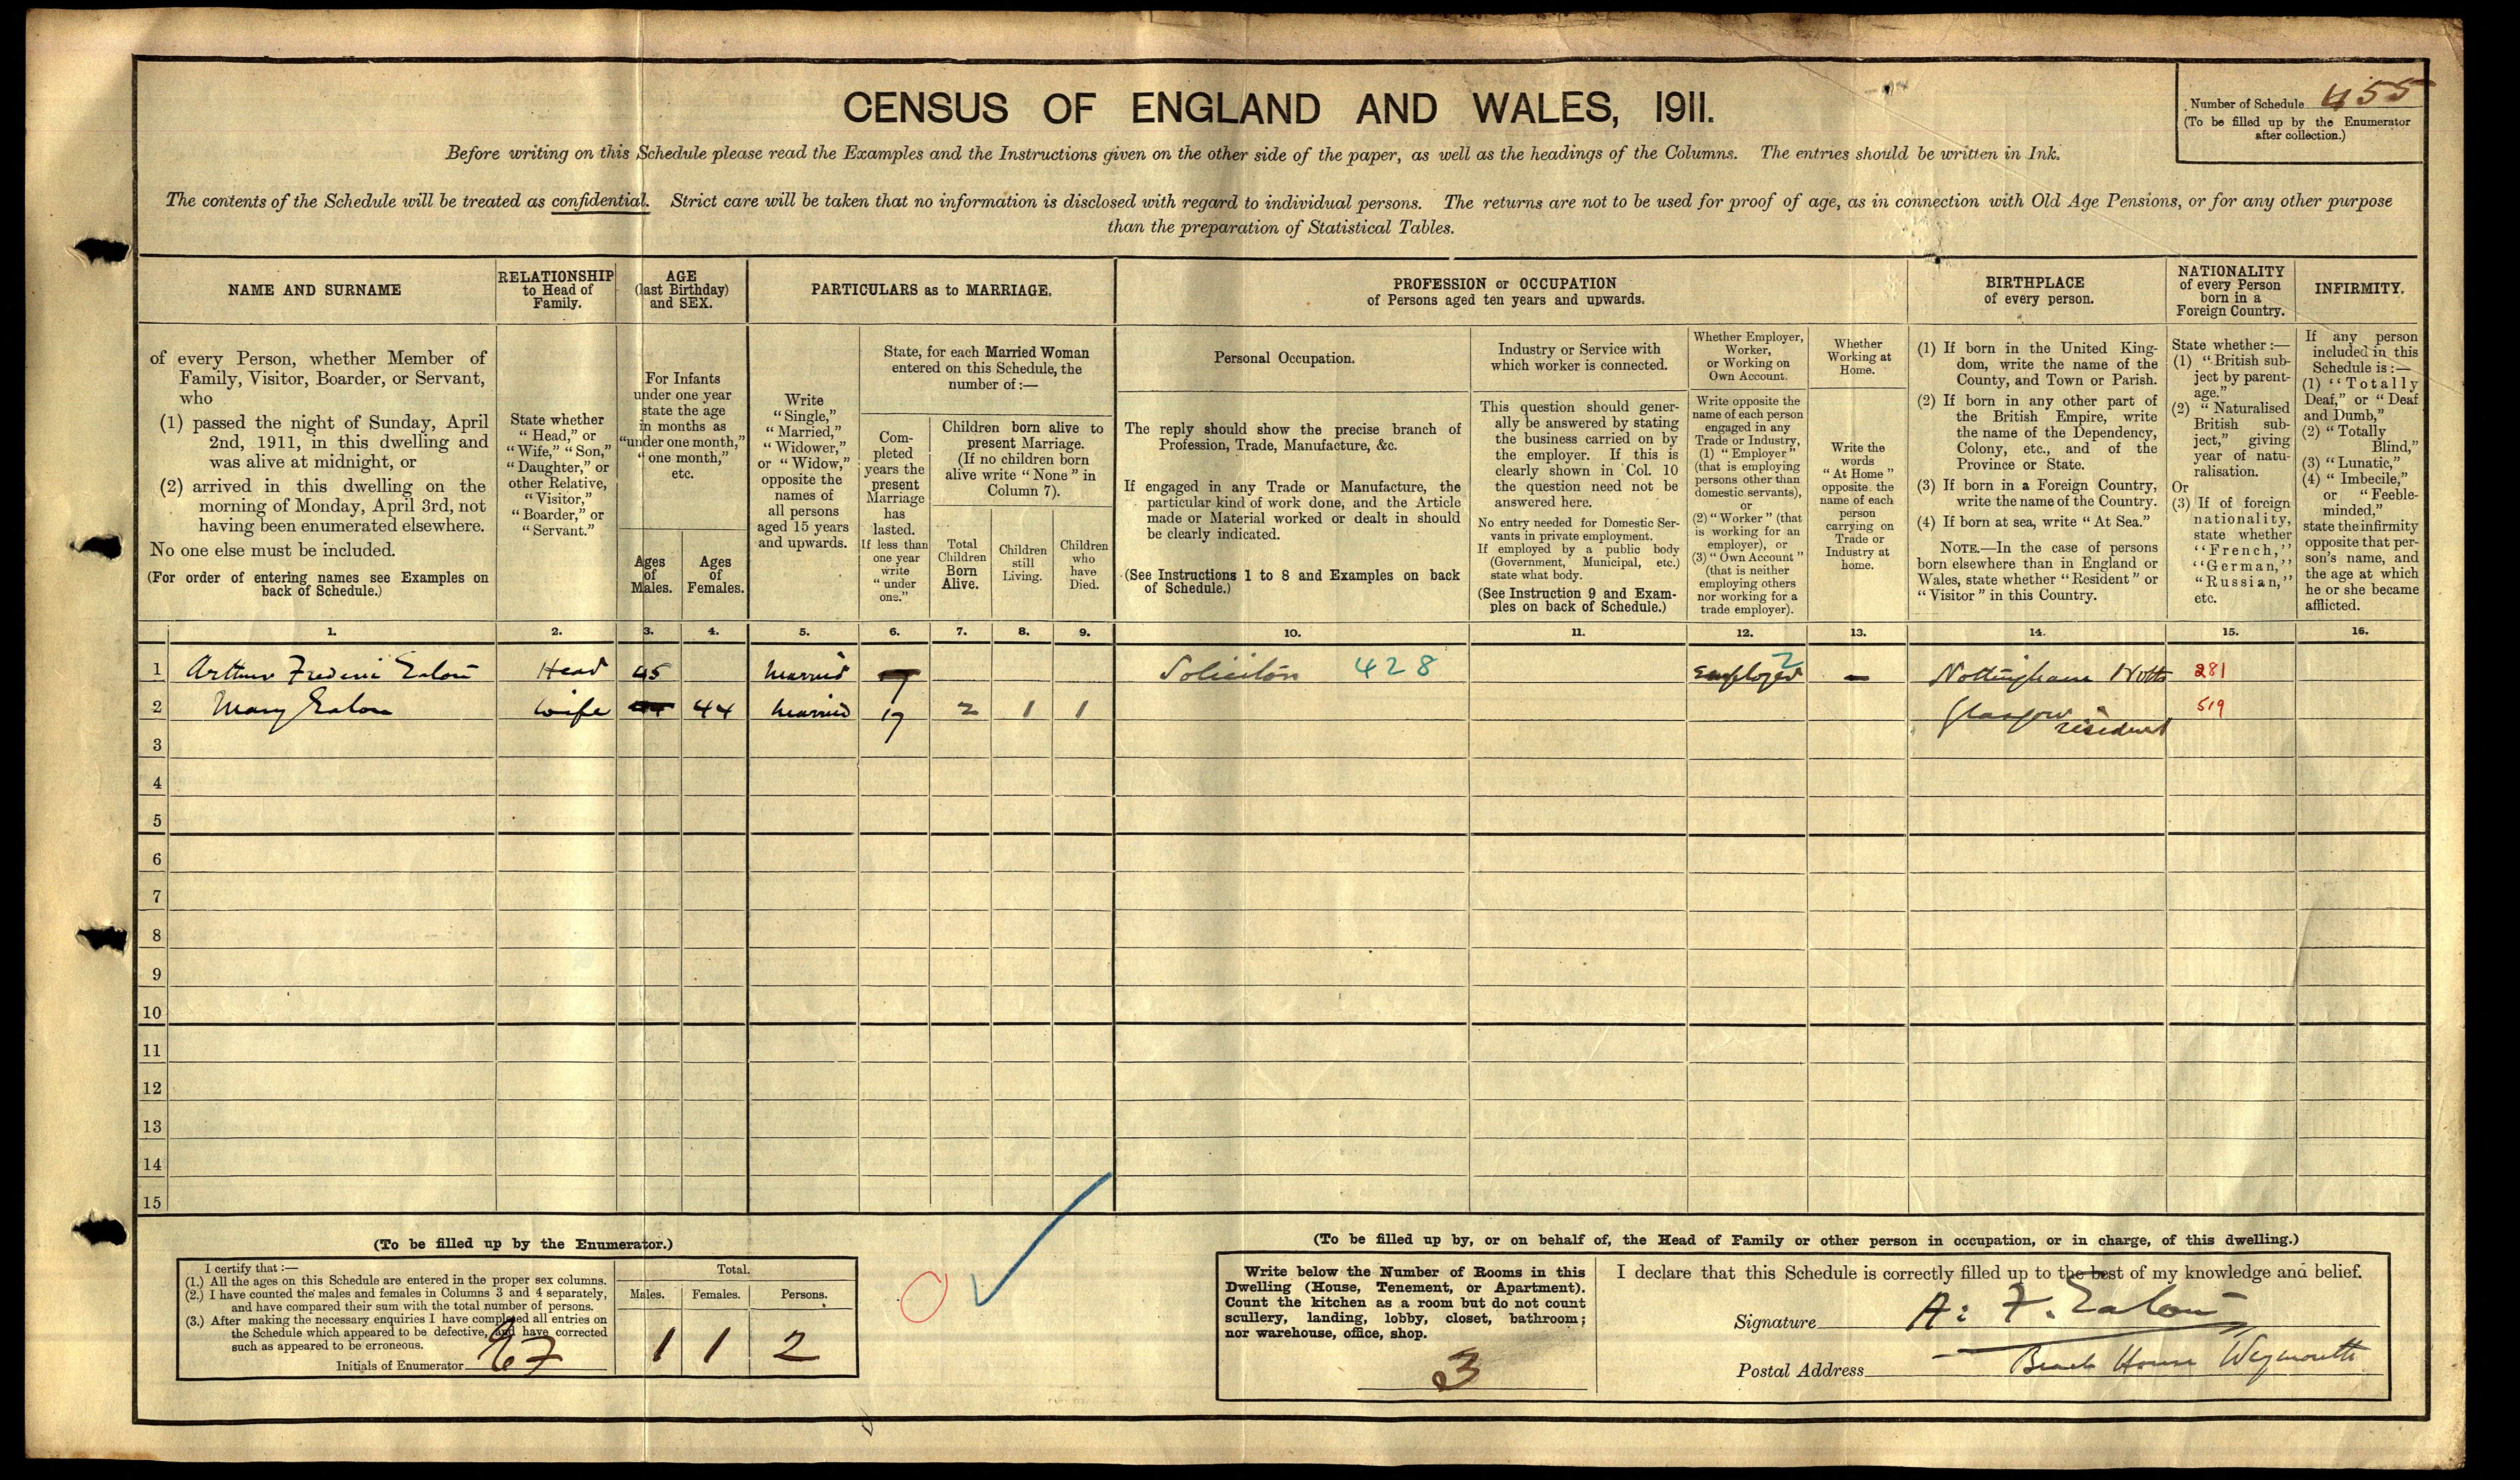 CENSUS OF ENGLAND AND WALES, 1911.
Number of Schedule 455
(To be filled up by the Enumerator
after collection.)
Before writing on this Schedule please read the Examples and the Instructions given on the other side of the paper, as well as the headings of the Columns. The entries should be written in Ink.
The contents of the Schedule will be treated as confidential. Strict care will be taken that no information is disclosed with regard to individual persons. The returns are not to be used for proof of age, as in connection with Old Age Pensions, or for any other purpose
than the preparation of Statistical Tables.
NAME AND SURNAME
of every Person, whether Member of
Family, Visitor, Boarder, or Servant,
who
(1) passed the night of Sunday, April
2nd, 1911, in this dwelling and
was alive at midnight, or
(2) arrived in this dwelling on the
morning of Monday, April 3rd, not
having been enumerated elsewhere.
No one else must be included.
(For order of entering names see Examples on
back of Schedule.)
RELATIONSHIP
to Head of
Family.
State whether
"Head," or
"Wife," "Son,"
"Daughter," or
other Relative,
"Visitor,"
"Boarder," or
"Servant."
AGE
(last Birthday)
and SEX.
For Infants
under one year
state the age
in months as
"under one month,"
"one month,"
etc.
Ages
of
Males.
Ages
of
Females.
PARTICULARS as to MARRIAGE.
Write
"Single,"
"Married,"
"Widower,"
or "Widow,"
opposite the
names of
all persons
aged 15 years
and upwards.
State, for each Married Woman
entered on this Schedule, the
number of:—
Com-
pleted
years the
present
Marriage
has
lasted.
If less than
one year
write
"under
one."
Children born alive to
present Marriage.
(If no children born
alive write "None" in
Column 7).
Total
Children
Born
Alive.
Children
still
Living.
Children
who
have
Died.
PROFESSION or OCCUPATION
of Persons aged ten years and upwards.
Personal Occupation.
The reply should show the precise branch of
Profession, Trade, Manufacture, &c.
If engaged in any Trade or Manufacture, the
particular kind of work done, and the Article
made or Material worked or dealt in should
be clearly indicated.
(See Instructions 1 to 8 and Examples on back
of Schedule.)
Industry or Service with
which worker is connected.
This question should gener-
ally be answered by stating
the business carried on by
the employer. If this is
clearly shown in Col. 10
the question need not be
answered here.
No entry needed for Domestic Ser-
vants in private employment.
If employed by a public body
(Government, Municipal, etc.)
state what body.
(See Instruction 9 and Exam-
ples on back of Schedule.)
Whether Employer,
Worker,
or Working on
Own Account.
Write opposite the
name of each person
engaged in any
Trade or Industry,
(1) "Employer"
(that is employing
persons other than
domestic servants),
or
(2) "Worker" (that
is working for an
employer), or
(3) "Own Account"
(that is neither
employing others
nor working for a
trade employer).
Whether
Working at
Home.
Write the
words
"At Home"
opposite the
name of each
person
carrying on
Trade or
Industry at
home.
BIRTHPLACE
of every person.
(1) If born in the United King-
dom, write the name of the
County, and Town or Parish.
(2) If born in any other part of
the British Empire, write
the name of the Dependency,
Colony, etc., and of the
Province or State.
(3) If born in a Foreign Country,
write the name of the Country.
(4) If born at sea, write "At Sea."
NOTE.—In the case of persons
born elsewhere than in England or
Wales, state whether "Resident" or
"Visitor" in this Country.
NATIONALITY
of every Person
born in a
Foreign Country.
State whether :—
(1) "British sub-
ject by parent-
age."
(2) "Naturalised
British sub-
ject," giving
year of natu-
ralisation.
Or
(3) If of foreign
nationality,
state whether
"French,"
"German,"
"Russian,"
etc.
INFIRMITY.
If any person
included in this
Schedule is :—
(1) "Totally
Deaf," or "Deaf
and Dumb,"
(2) "Totally
Blind,"
(3) "Lunatic,"
(4) "Imbecile,"
or "Feeble-
minded,"
state the infirmity
opposite that per-
son's name, and
the age at which
he or she became
afflicted.
1. 2. 3. 4. 5. 6. 7. 8. 9. 10. 11. 12. 13. 14. 15. 16.
1 Arthur Head 45 Married Solicitor 428 2 – Nottingham Notts 281
2 Mary Wife 44 Married 17 2 1 1 Glasgow 519
resident
3
4
5
6
7
8
9
10
11
12
13
14
15
(To be filled up by the Enumerator.)
I certify that :—
(1.) All the ages on this Schedule are entered in the proper sex columns.
(2.) I have counted the males and females in Columns 3 and 4 separately,
and have compared their sum with the total number of persons.
(3.) After making the necessary enquiries I have completed all entries on
the Schedule which appeared to be defective, and have corrected
such as appeared to be erroneous.
Initials of Enumerator
Total.
Males. Females. Persons.
1 1 2
(To be filled up by, or on behalf of, the Head of Family or other person in occupation, or in charge, of this dwelling.)
Write below the Number of Rooms in this
Dwelling (House, Tenement, or Apartment).
Count the kitchen as a room but do not count
scullery, landing, lobby, closet, bathroom;
nor warehouse, office, shop.
3
I declare that this Schedule is correctly filled up to the best of my knowledge and belief.
Signature A. F.
Postal Address Beach House Weymouth